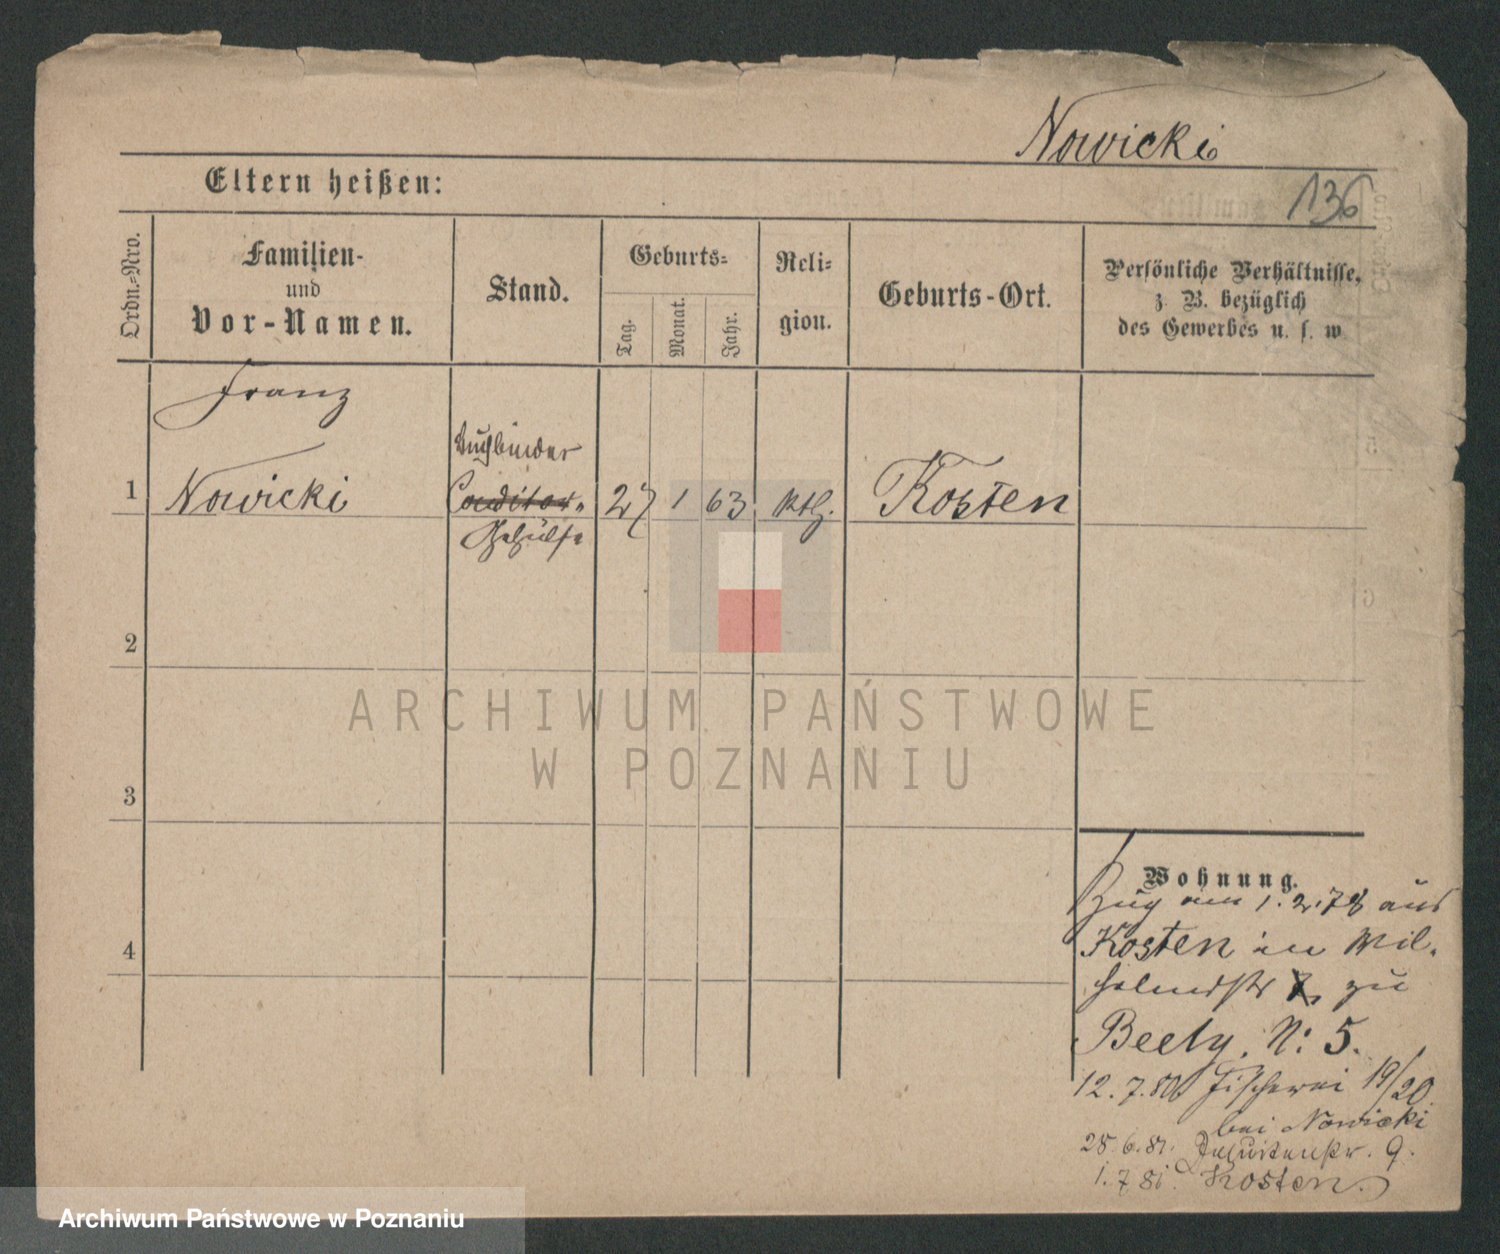 Nowicki
Eltern heißen:
136
Ordn.-Nro.
Familien-
und
Vor-Namen.
Stand.
Geburts-
Tag.
Monat.
Jahr.
Reli-
gion.
Geburts-Ort.
Persönliche Verhältnisse,
z B. bezüglich
des Gewerbes u. s. w
Franz
Buchbinder
1 Nowicki Conditor- 27 1 63 ktl. Kosten
Gehülfe
2
3
4
ARCHIWUM PAŃSTWOWE
W POZNANIU
Wohnung.
Zug am 1.2.78 aus
Kosten in Wil-
helmstr 7, zu
Beely. N: 5.
12.7.80 Fischerei 19/20
bei Nowicki
28.6.81. Jesuitenstr. 9.
1.7.81. Kosten.
Archiwum Państwowe w Poznaniu